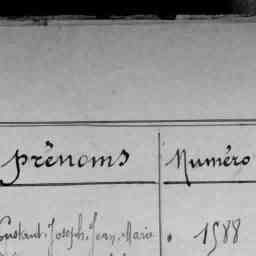 prénoms Numéro
Constant, Joseph, Jean, Marie 1588